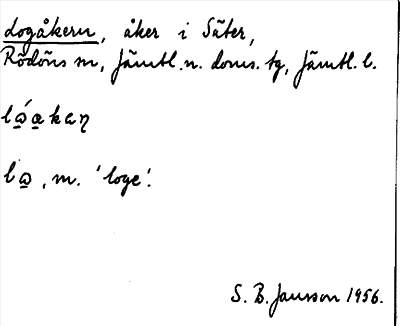 Logåkern, åker i Säter,
Rödöns sn, Jämtl. n. doms. tg, Jämtl. l.
lo̲.m. 'loge'.
S. B. Jansson 1956.